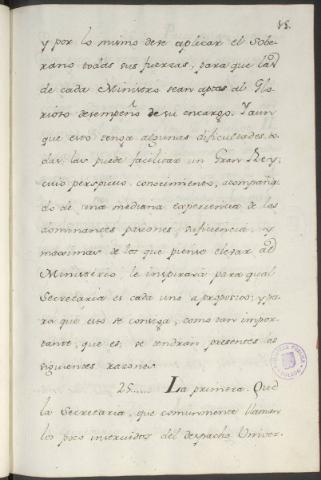 85.
y por lo mismo deve aplicar el Sobe-
rano todas sus fuerzas, para que las
de cada Ministro sean aptas al Glo-
rioso desempeño de su encargo. Y aun
que esto tenga algunas dificultades, to-
das las puede facilitar un Gran Rey,
cuio perspicuo conocimiento, acompaña-
do de una mediana experiencia de las
dominantes pasiones, suficiencia, y
maximas de los que piense elevar al
Ministerio, le inspirará para qual
Secretaria es cada uno a proposito: y pa-
ra que esto se consiga, como tan impor-
tante, que es, se tendran presentes las
siguientes razones.
25..... La primera. Que
la Secretaria, que comunmente llaman
los poco instruidos del despacho Univer-